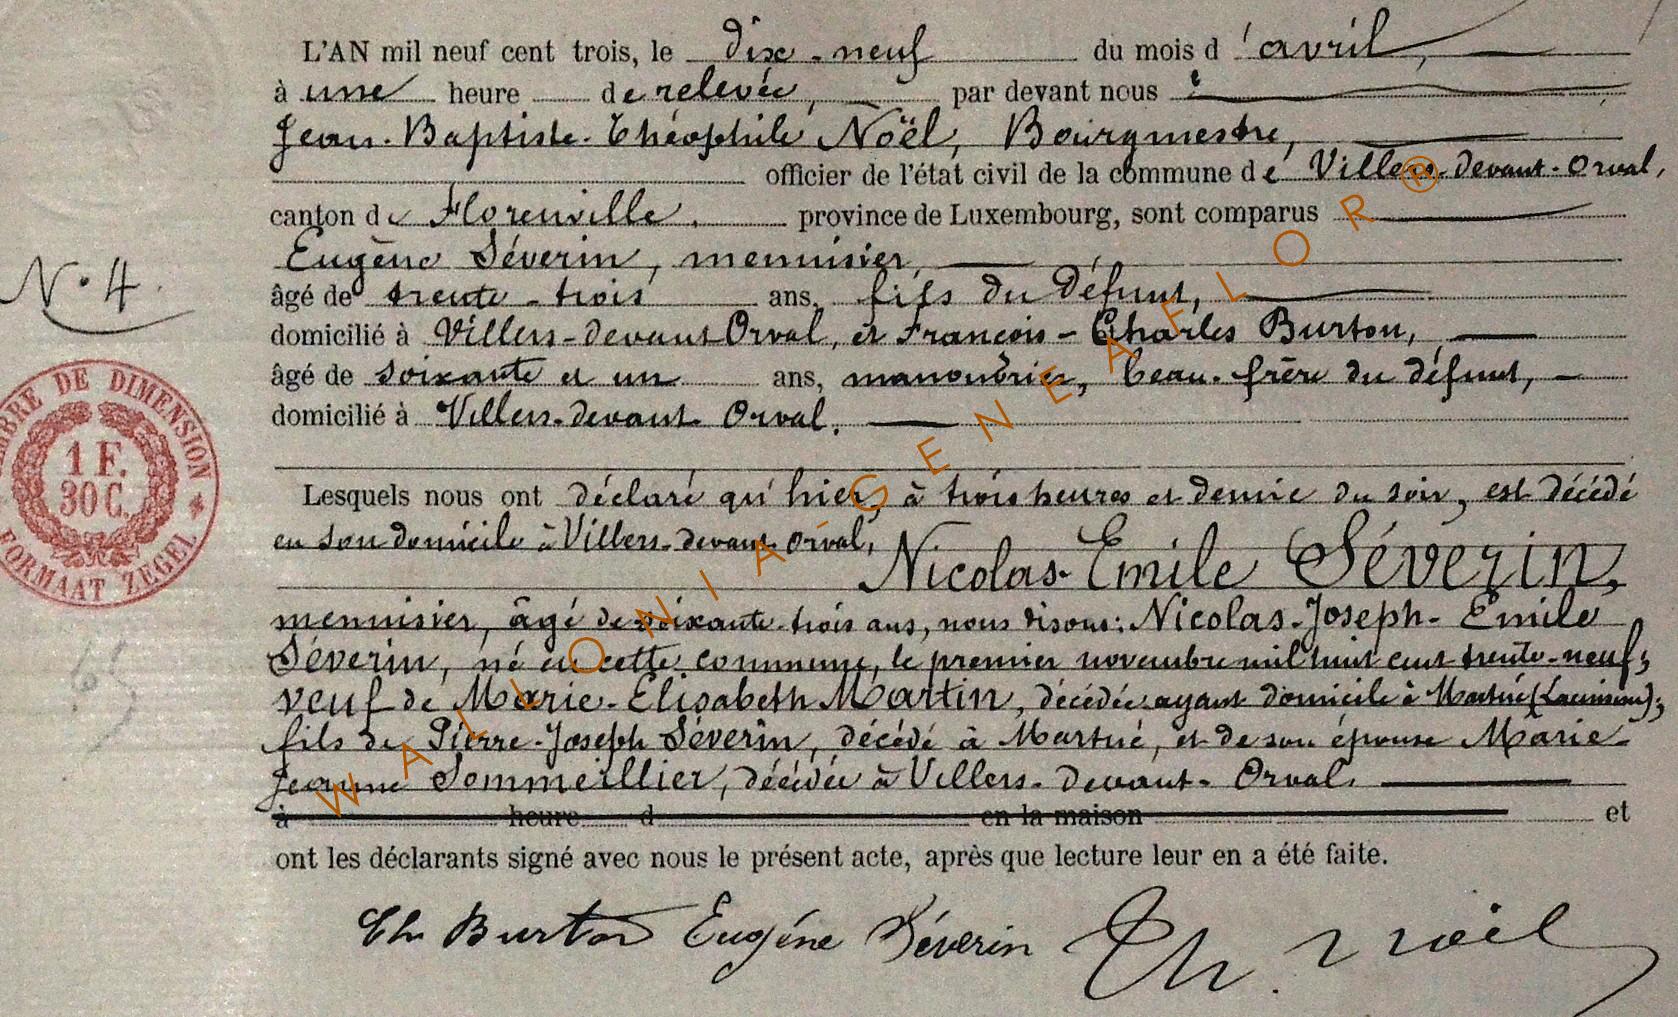 L'AN mil neuf cent trois, le dix-neuf du mois d'avril,
à une heure de relevée, par devant nous
Jean-Baptiste-Théophile Noël, Bourgmestre,
officier de l'état civil de la commune de Villers-devant-Orval,
canton de Florenville. province de Luxembourg, sont comparus
Eugène Séverin, menuisier,
âgé de trente-trois ans, fils du défunt,
N. 4.
domicilié à Villers-devant Orval, et François-Charles Burton,
âgé de soixante et un ans, manouvrier, beau-frère du défunt,
domicilié à Villers-devant-Orval.
TIMBRE DE DIMENSION
1 F.
30 C.
FORMAAT ZEGEL
Lesquels nous ont déclaré qu'hier, à trois heures et demie du soir, est décédé
en son domicile à Villers-devant-Orval,
Nicolas-Emile Séverin,
menuisier, âgé de soixante-trois ans, nous disons: Nicolas-Joseph-Emile
Séverin, né en cette commune, le premier novembre mil huit cent trente-neuf;
veuf de Marie-Elisabeth Martin, décédée ayant domicile à Martué (Lacuisine);
fils de Pierre-Joseph Séverin, décédé à Martué, et de son épouse Marie-
Jeanne Sommeillier, décédée à Villers-devant-Orval.
à heure d en la maison et
ont les déclarants signé avec nous le présent acte, après que lecture leur en a été faite.
Ch Burton Eugéne Séverin Th. Noël
65
WALLONIA-GENEAFLOR®